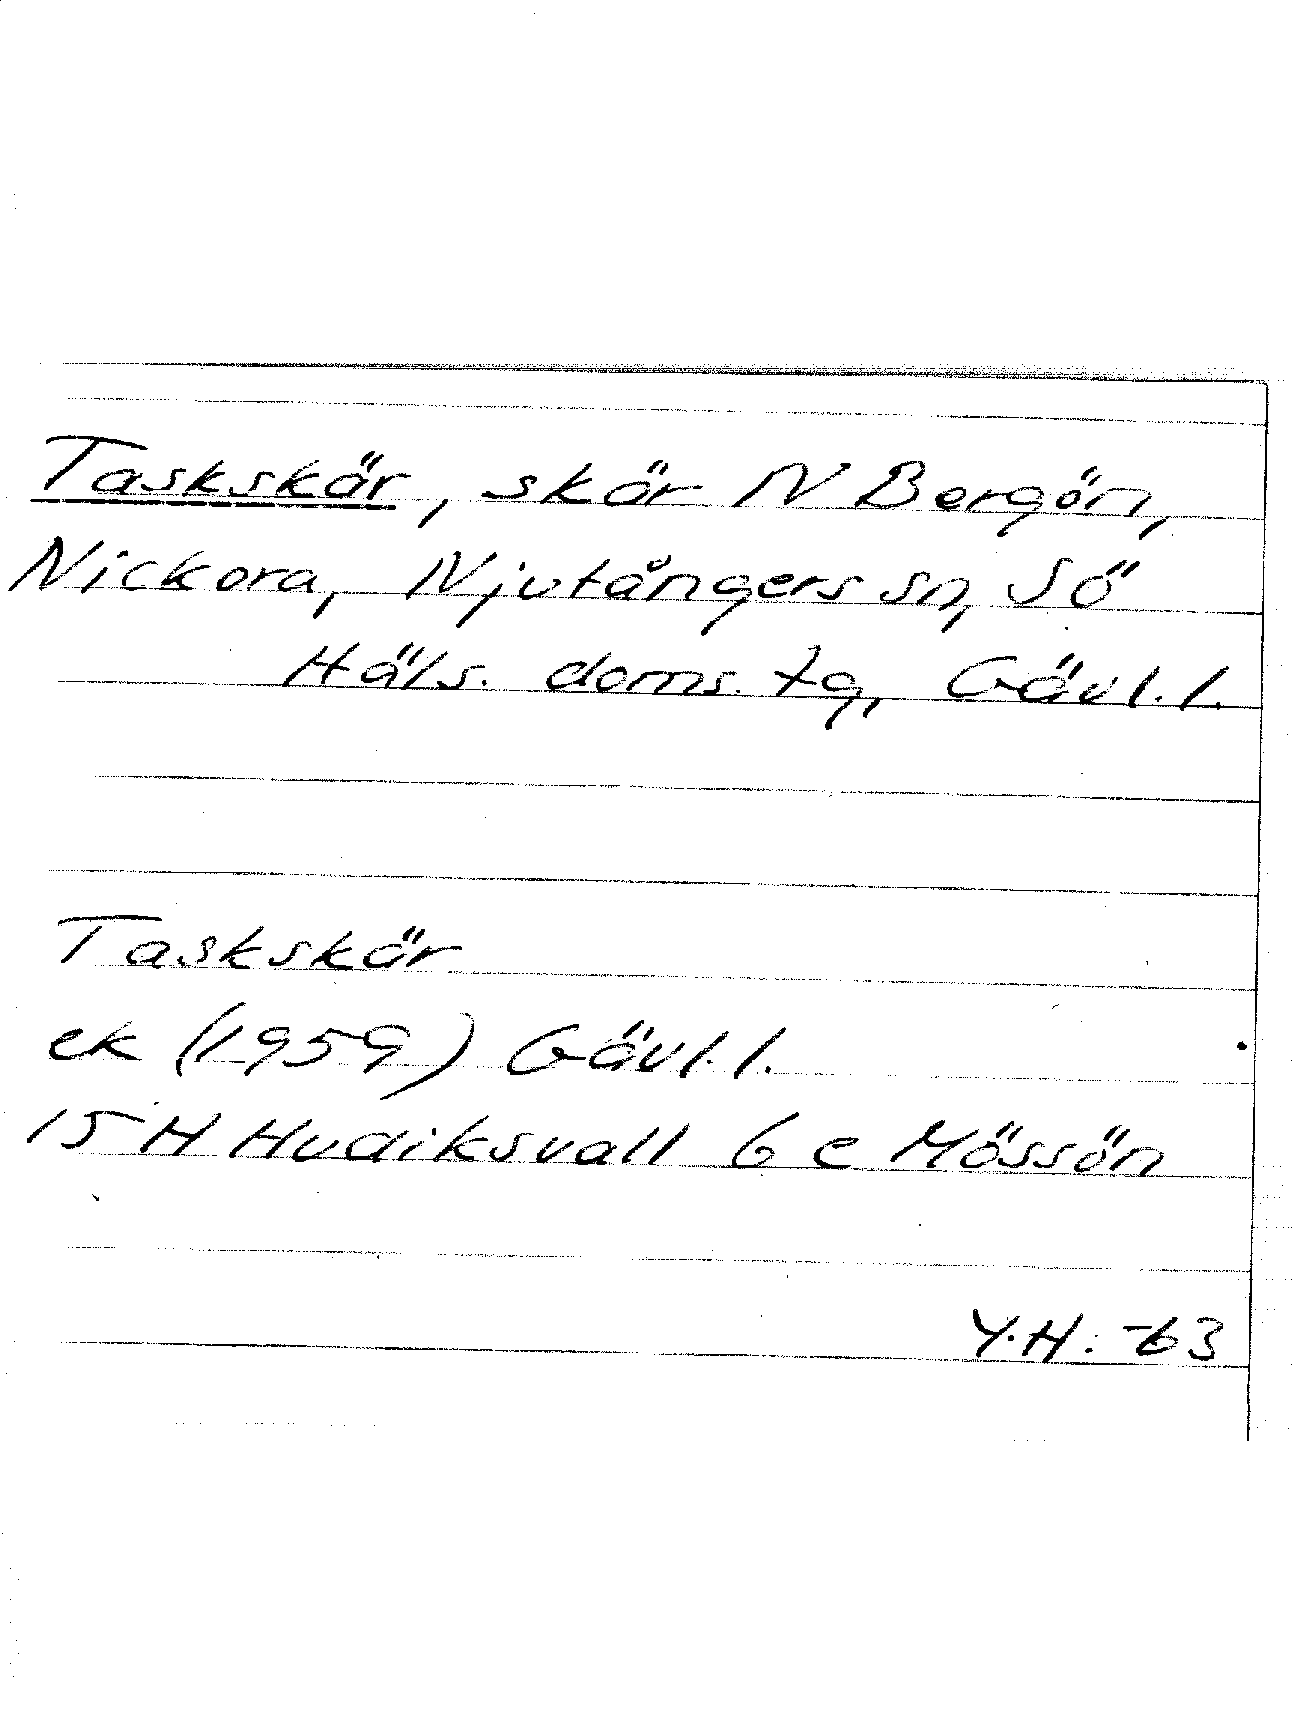 Taskskär, skär N Bergön,
Nickora, Njutångers sn, Sö
Häls. doms. tg, Gävl. l.
Taskskär
ek (1959) Gävl. l.
15 H Hudiksvall 6 c Mössön
Y.H. -63